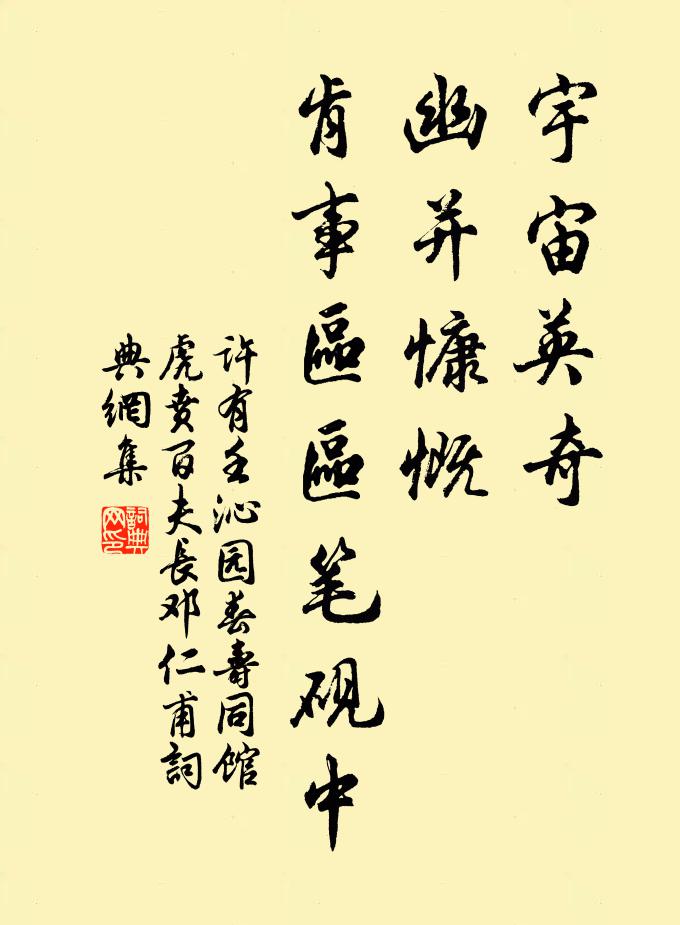 宇宙英奇
幽并慷慨
肯事區區笔砚中
许有壬沁园春壽同馆
虎賁百夫長邓仁甫詞
典網集
詞典
网印